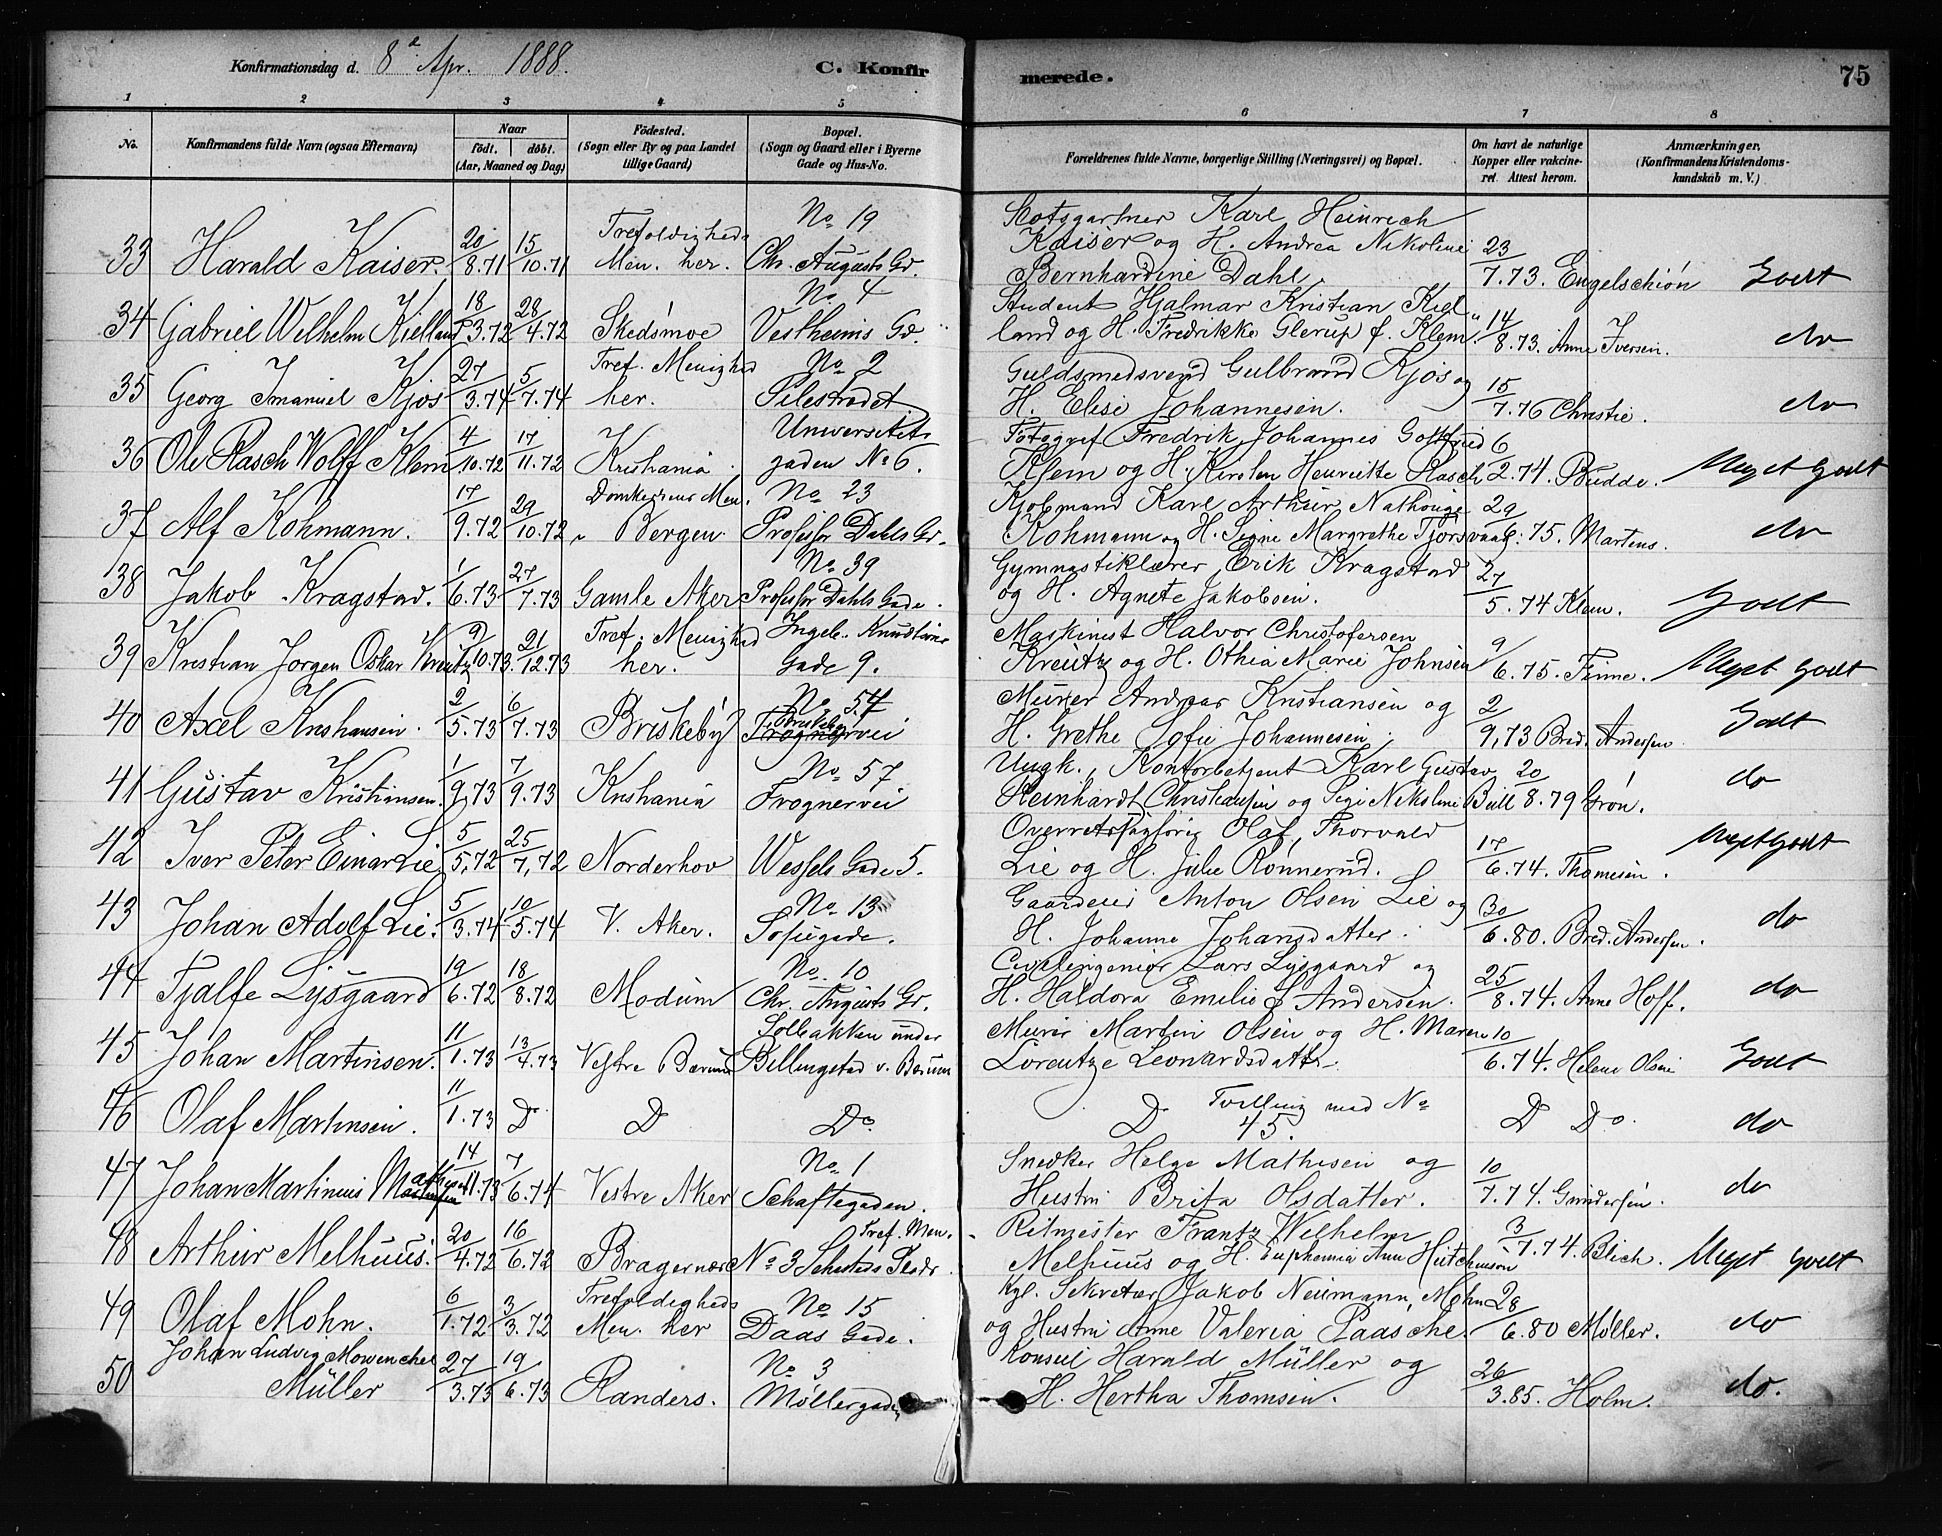 Konfirmationsdag d. 8de Apr. 1888.
C. Konfirmerede.
75
1 2 3 4 5 6 7 8
No.
Konfirmandens fulde Navn (ogsaa Efternavn)
Naar
födt. döbt.
(Aar, Maaned og Dag)
Födested.
(Sogn eller By og paa Landet
tillige Gaard)
Bopæl.
(Sogn og Gaard eller i Byerne
Gade og Hus-No.
Forældrenes fulde Navne, borgerlige Stilling (Næringsvei) og Bopæl.
Om havt de naturlige
Kopper eller vakcine-
ret. Attest herom.
Anmærkninger.
(Konfirmandens Kristendoms-
kundskab m. V.)
33 Harald Kaiser. 20/8.71 15/10.71
Trefoldigheds
Men. her.
No 19
Chr. Augusts Gd.
Slotsgartner Karl Heinrich
Kaiser og H. Andrea Nikoline
Bernhardine Dahl.
23/7.73. Engelschiøn
Godt
34 Gabriel Wilhelm Kielland 18/3.72 28/4.72
Skedsmoe
No 4
Vestheims Gd.
Student Hjalmar Kristian Kiel-
land og H. Fredrikke Glerup f. Klem.
14/8.73. Anne Iversen.
do
35 Georg Imanuel Kjos 27/3.74 5/7.74
Tref. Menighed
her.
No 2
Pilestrædet
Guldsmedsvend Gulbrand Kjos og
H. Elise Johannesen.
15/7.76 Christie.
do
36 Ole Rasch Wolff Klem 4/10.72 17/11.72
Kristiania
Universitets
gaden No 6.
Fotograf Fredrik Johannes Gottfried
Klem og H. Kirsten Henriette Rasch
6/2.74. Budde.
Meget Godt
37 Alf Kohmann. 17/9.72 29/10.72
Domkirkens Men.
Bergen.
No 23
Professor Dahls Gd.
Kjøbmand Karl Arthur Nathanige
Kohmann og H. Signe Margrethe Tjorsvaag:
29/6.75. Martens.
do
38 Jakob Kragstad. 1/6.73 27/7.73
Gamle Aker
No 39
Professor Dahls Gade.
Gymnastiklærer Erik Kragstad
og H. Agnete Jakobsen.
27/5.74 Klem.
Godt
39 Kristian Jørgen Oskar Kreutz 9/10.73. 21/12.73
Tref. Menighed
her.
Ingeb. Knudtsøns
Gade 9.
Maskinist Halvor Christofersen
Kreutz og H. Othia Marie Johnsen
9/6.75. Finne.
Meget Godt
40 Axel Kristiansen. 2/5.73 6/7.73
Briskeby
No 54
Briskeby
Frognervei
Murer Andreas Kristiansen og
H. Grethe Sofie Johannesen.
2/9.73 Bred. Andersen.
Godt
41 Gustav Kristiansen. 1/9.73 7/9.73
Kristiania
No 57
Frognervei
Ungk., Kontorbetjent Karl Gustav
Reinhardt Christiansen og Pige Nikoline Bull
20/8.79 Grøn.
do
42 Iver Peter Einar Lie 5/5.72 25/7.72
Norderhov
Wessels Gade 5.
Overretssagfører Olaf Thorvald
Lie og H. Julie Rønnerud.
17/6.74. Thomesen.
Meget Godt
43 Johan Adolf Lie. 5/3.74 10/5.74
V. Aker.
No 13
Sofiegade.
Gaardeier Anton Olsen Lie og
H. Johanne Johansdatter.
30/6.80. Bred. Andersen.
do
44 Tjalfe Lysgaard 19/6.72 18/8.72
Modum
No 10
Chr. Augusts Gd.
Civilingeniør Lars Lysgaard og
H. Haldora Emilie f. Andersen.
25/8.74. Anne Hoff.
do
45 Johan Martinsen. 11/1.73 13/4.73
Vestre Bærum
Solbakken under
Billingstad v. Bærum
Murer Martin Olsen og H. Maren
Lorentze Leonardsdatter.
10/6.74. Helene Olsen
Godt
46 Olaf Martinsen. 11/1.73 Do
Do
Do
Do Tvilling med No
45.
Do Do
do
47 Johan Martinius Mathisen 14/11.73 7/6.74
Vestre Aker
No 1
Schaftegaden.
Snedker Helge Mathisen og
Hustru Brita Olsdatter.
10/7.74. Gundersen.
do
48 Arthur Melhuus. 20/4.72 16/6.72
Bragernæs
Tref. Men.
No 3 Schesteds Pladr.
Ritmester Frantz Wilhelm
Melhuus og H. Euphemia Ann Hutchinson
3/7.74. Blich.
Meget Godt
49 Olaf Mohn. 6/1.72 3/3.72
Trefoldigheds
Men. her
No 15
Daas Gade.
Kgl. Sekretær Jakob Neumann Mohn
og Hustru Anne Valeria Paasche.
28/6.80 Møller.
do
50 Johan Ludvig Mowinckel
Müller 27/3.73 19/6.73
Randers.
No 3
Møllergaden
Konsul Harald Müller og
H. Hertha Thomsen.
26/3.85. Holm.
do.